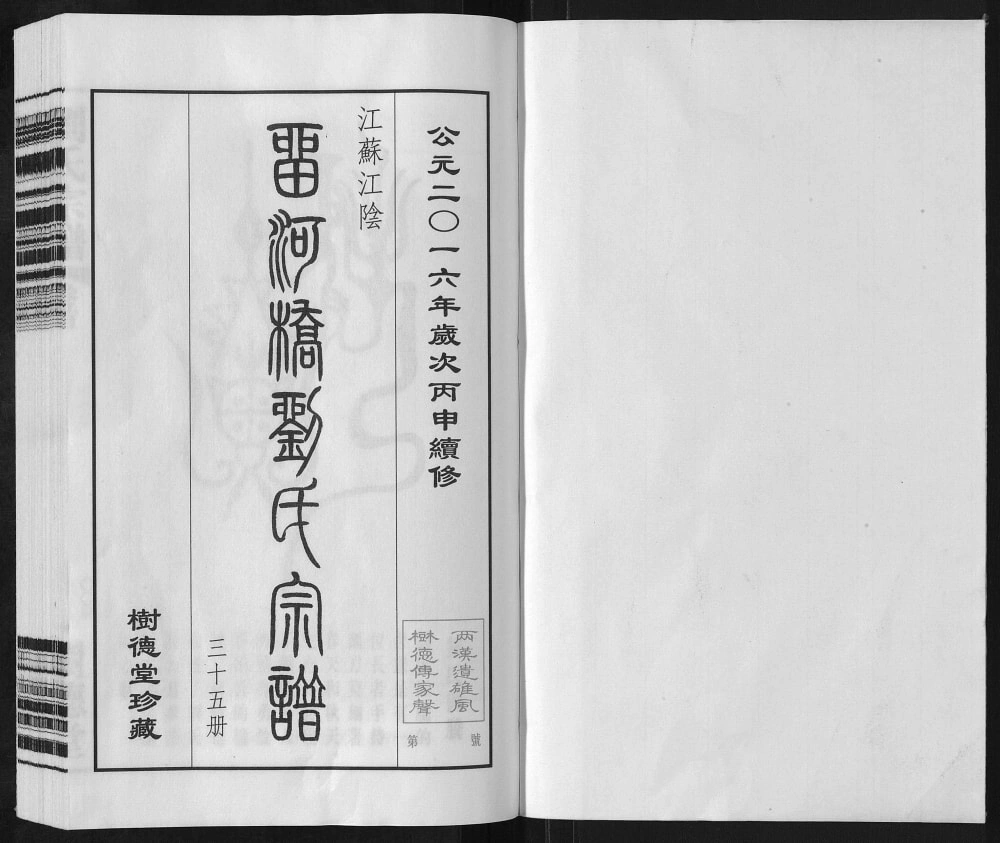 公元二〇一六年歲次丙申續修
两漢遺雄風
樹德傳家聲
第 號
江蘇江陰
畱河橋劉氏宗譜
三十五册
樹德堂珍藏